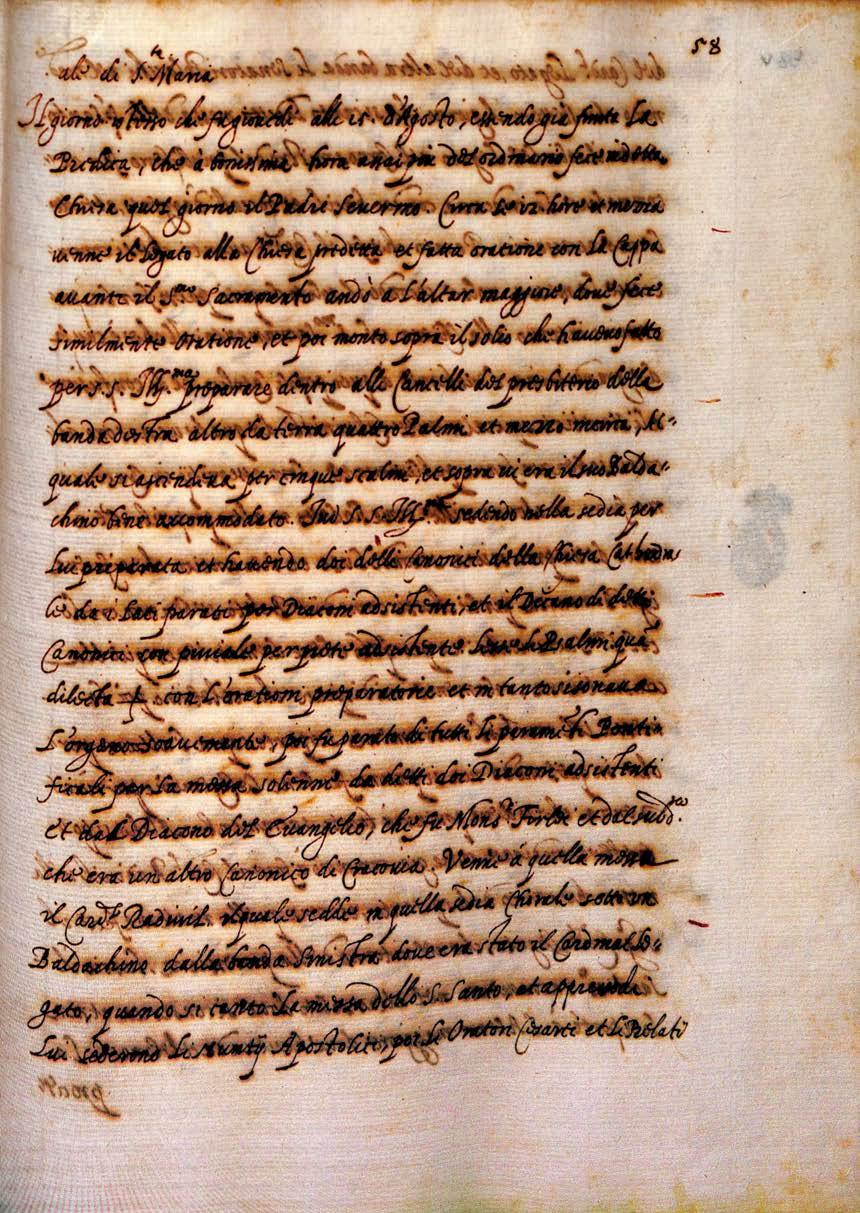 58
ale di S.ta Maria
Il giorno istesso che fu giovedi alli 15. d'Agosto, essendo già finita la
Predica, che à bonissima hora assai più del ordinario fece in detta
Chiesa quel giorno il Padre Severino. Circa le 12 hore et mezza
venne il legato alla Chiesa predetta et fatta oratione con la Cappa
avante il S.mo Sacramento andò a l'altar maggiore, dove fece
similmente oratione, et poi monto sopra il solio che havevo fatto
per S. S. Ill.ma preparare dentro alli Cancelli del presbiterio della
banda destra altro da terra quattro Palmi et mezzo in circa, Al-
quale si ascendeva per cinque scalini, et sopra vi era il suo Balda-
chino bene accommodato. S. S. Ill.ma sedendo nella sedia per
lui preparata, et havendo doi delli Canonici della Chiesa Cathedra
le da i lati parati per Diaconi adsistenti, et il Decano di detti
Canonici con piviale per prete adsistente lesse li Psalmi quã
dilecta con l'orationi preparatorie et in tanto si sonava
L'organo soavemente, poi fu parato di tutti li paramẽti Pontifi
ficali per la messa solenne da detti doi Diaconi adsistenti
et dal Diacono del Evangelio, che fu Mons.r Firlei et dal subd.co
che era un altro Canonico di Cracovia. Venne à quella messa
il Card.l Radivil, il quale sedde in quella sedia Chorale sotto un
Baldachino dalla banda sinistra dove era stato il Cardinal le-
gato, quando si canto la messa dello S. Santo, et appresso di
Lui sederono li Nuntij Apostolici, poi li Oratori Cesarei et li Prelati